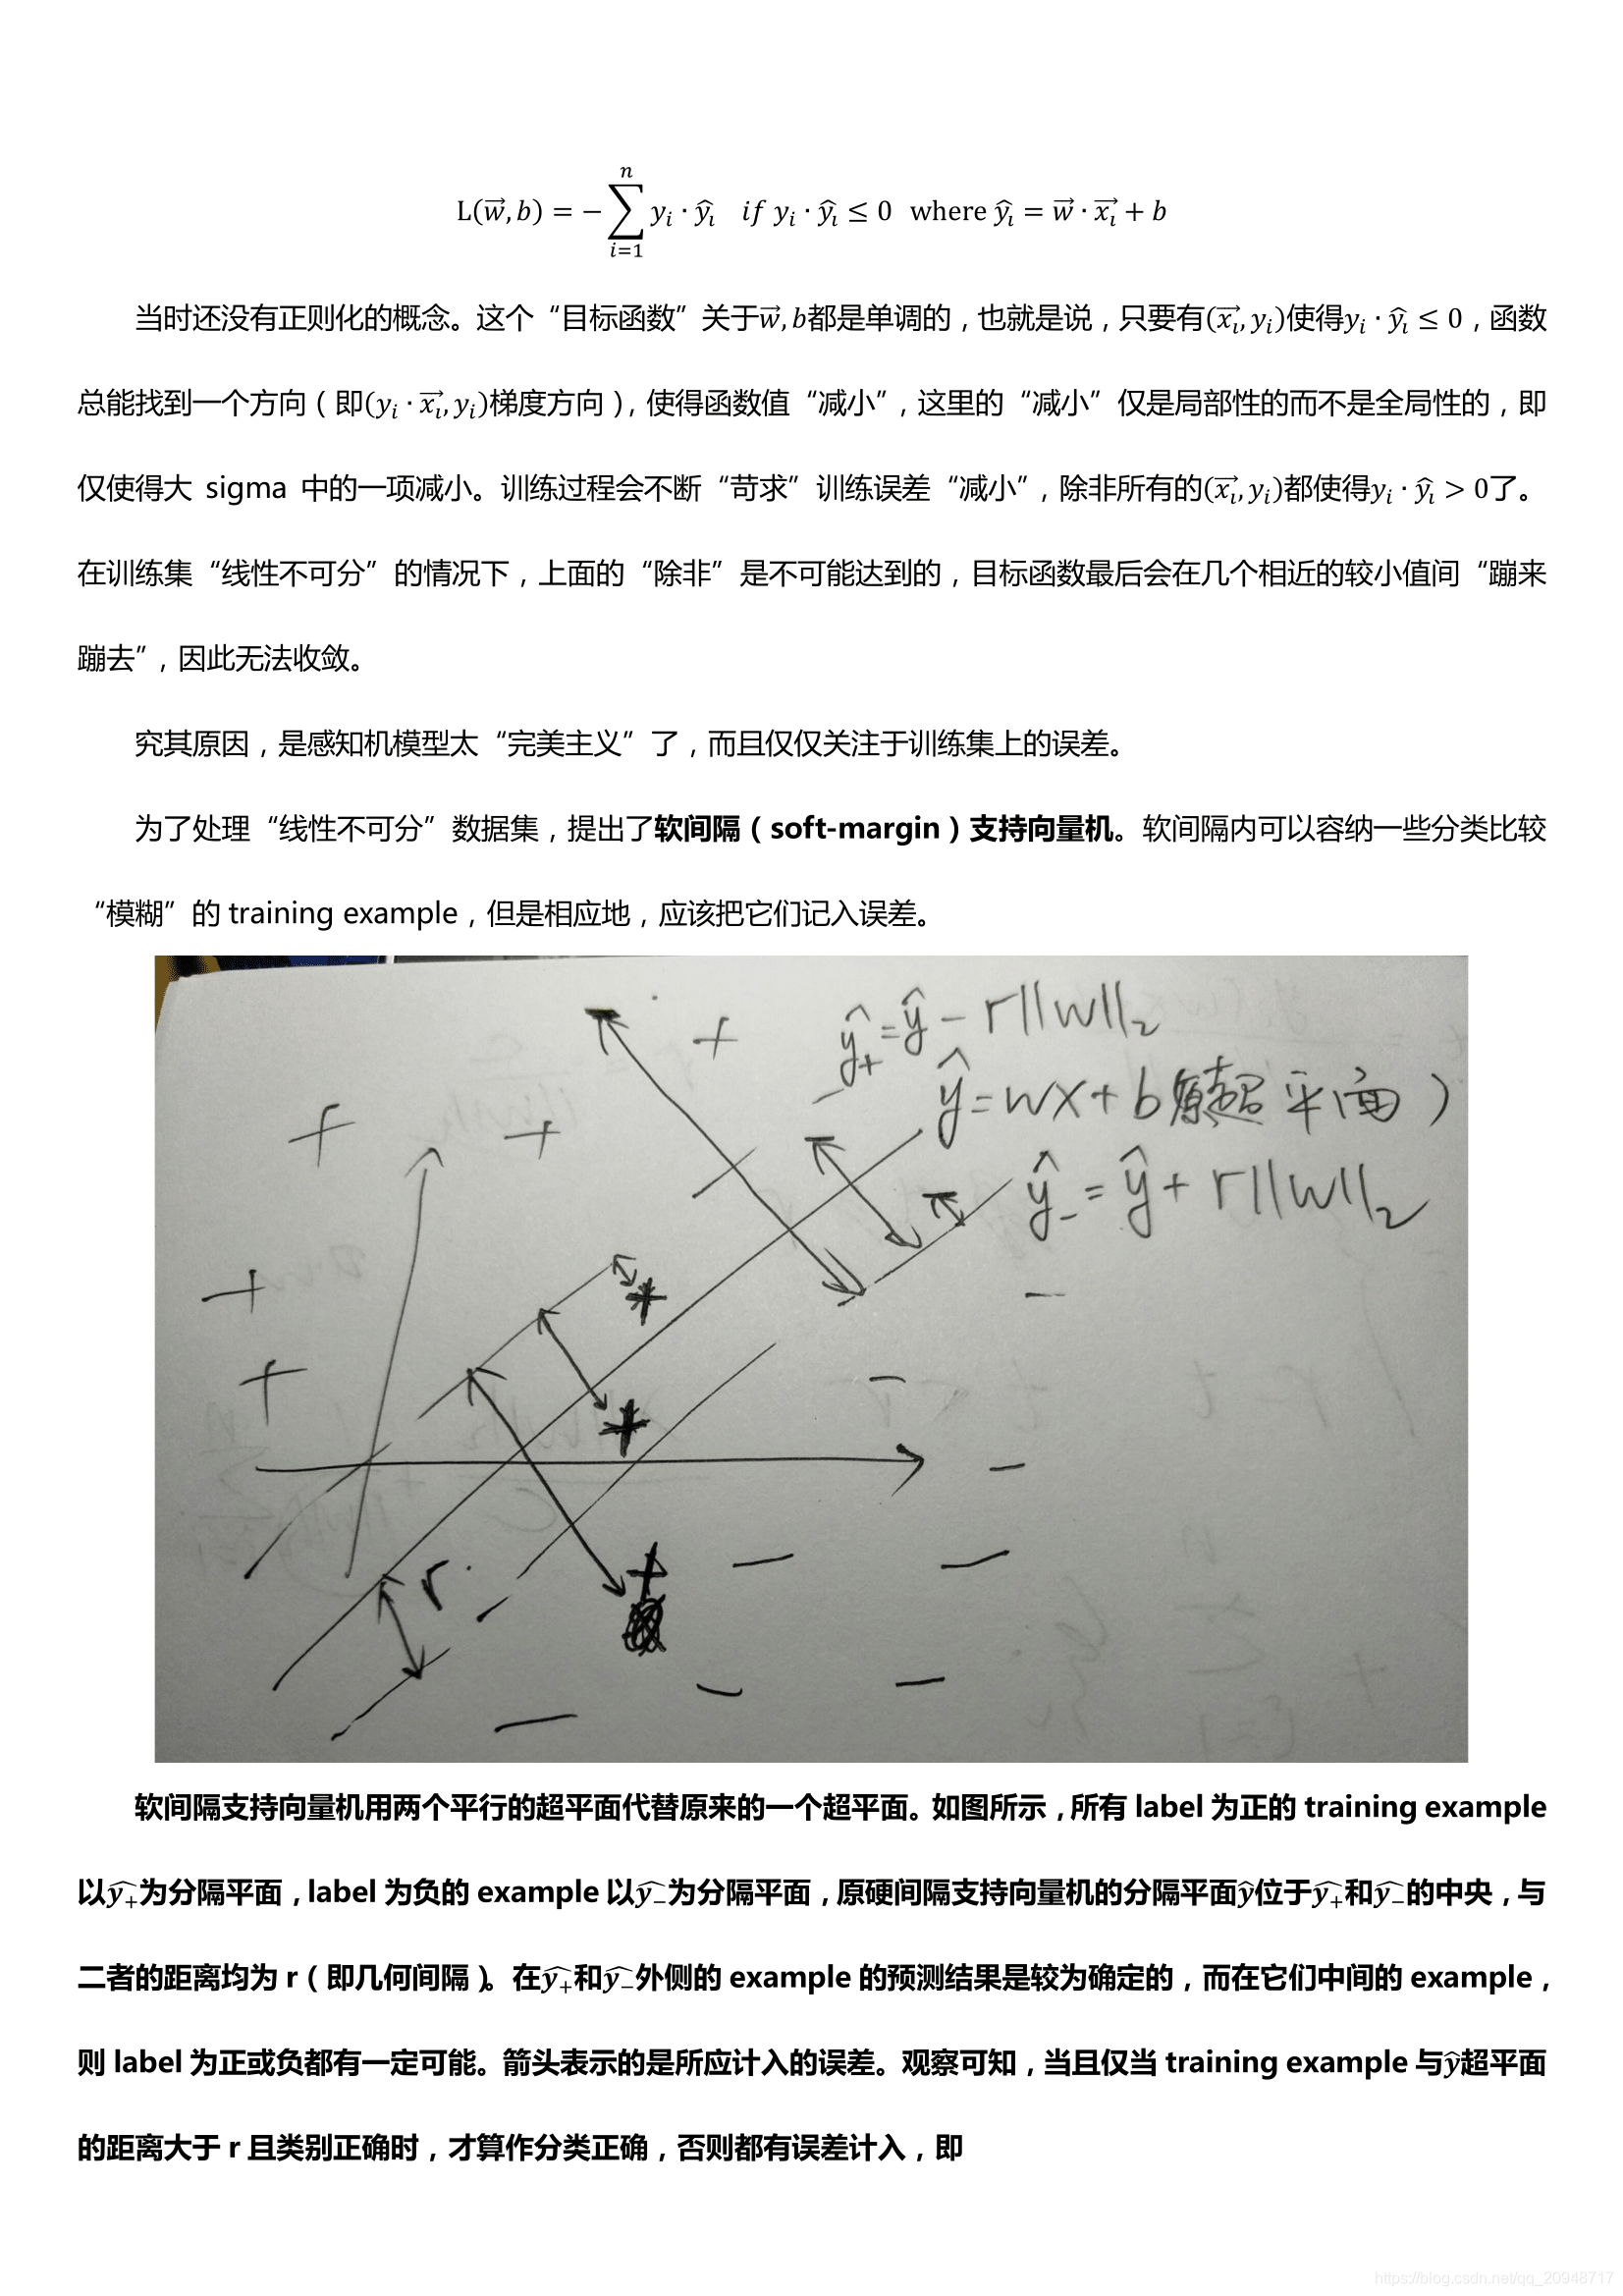 L(w⃗, b) = − ∑ᵢ₌₁ⁿ yᵢ · ŷᵢ  if yᵢ · ŷᵢ ≤ 0  where ŷᵢ = w⃗ · x⃗ᵢ + b
当时还没有正则化的概念。这个“目标函数”关于w⃗, b都是单调的，也就是说，只要有(x⃗ᵢ, yᵢ)使得yᵢ · ŷᵢ ≤ 0，函数
总能找到一个方向（即(yᵢ · x⃗ᵢ, yᵢ)梯度方向），使得函数值“减小”，这里的“减小”仅是局部性的而不是全局性的，即
仅使得大 sigma 中的一项减小。训练过程会不断“苛求”训练误差“减小”，除非所有的(x⃗ᵢ, yᵢ)都使得yᵢ · ŷᵢ > 0了。
在训练集“线性不可分”的情况下，上面的“除非”是不可能达到的，目标函数最后会在几个相近的较小值间“蹦来
蹦去”，因此无法收敛。
究其原因，是感知机模型太“完美主义”了，而且仅仅关注于训练集上的误差。
为了处理“线性不可分”数据集，提出了软间隔（soft-margin）支持向量机。软间隔内可以容纳一些分类比较
“模糊”的 training example，但是相应地，应该把它们记入误差。
ŷ₊ = ŷ − r||w||₂
ŷ = wx + b 原超平面）
ŷ₋ = ŷ + r||w||₂
r
软间隔支持向量机用两个平行的超平面代替原来的一个超平面。如图所示，所有 label 为正的 training example
以ŷ₊为分隔平面，label 为负的 example 以ŷ₋为分隔平面，原硬间隔支持向量机的分隔平面ŷ位于ŷ₊和ŷ₋的中央，与
二者的距离均为 r（即几何间隔）。在ŷ₊和ŷ₋外侧的 example 的预测结果是较为确定的，而在它们中间的 example，
则 label 为正或负都有一定可能。箭头表示的是所应计入的误差。观察可知，当且仅当 training example 与ŷ超平面
的距离大于 r 且类别正确时，才算作分类正确，否则都有误差计入，即
https://blog.csdn.net/qq_20948717